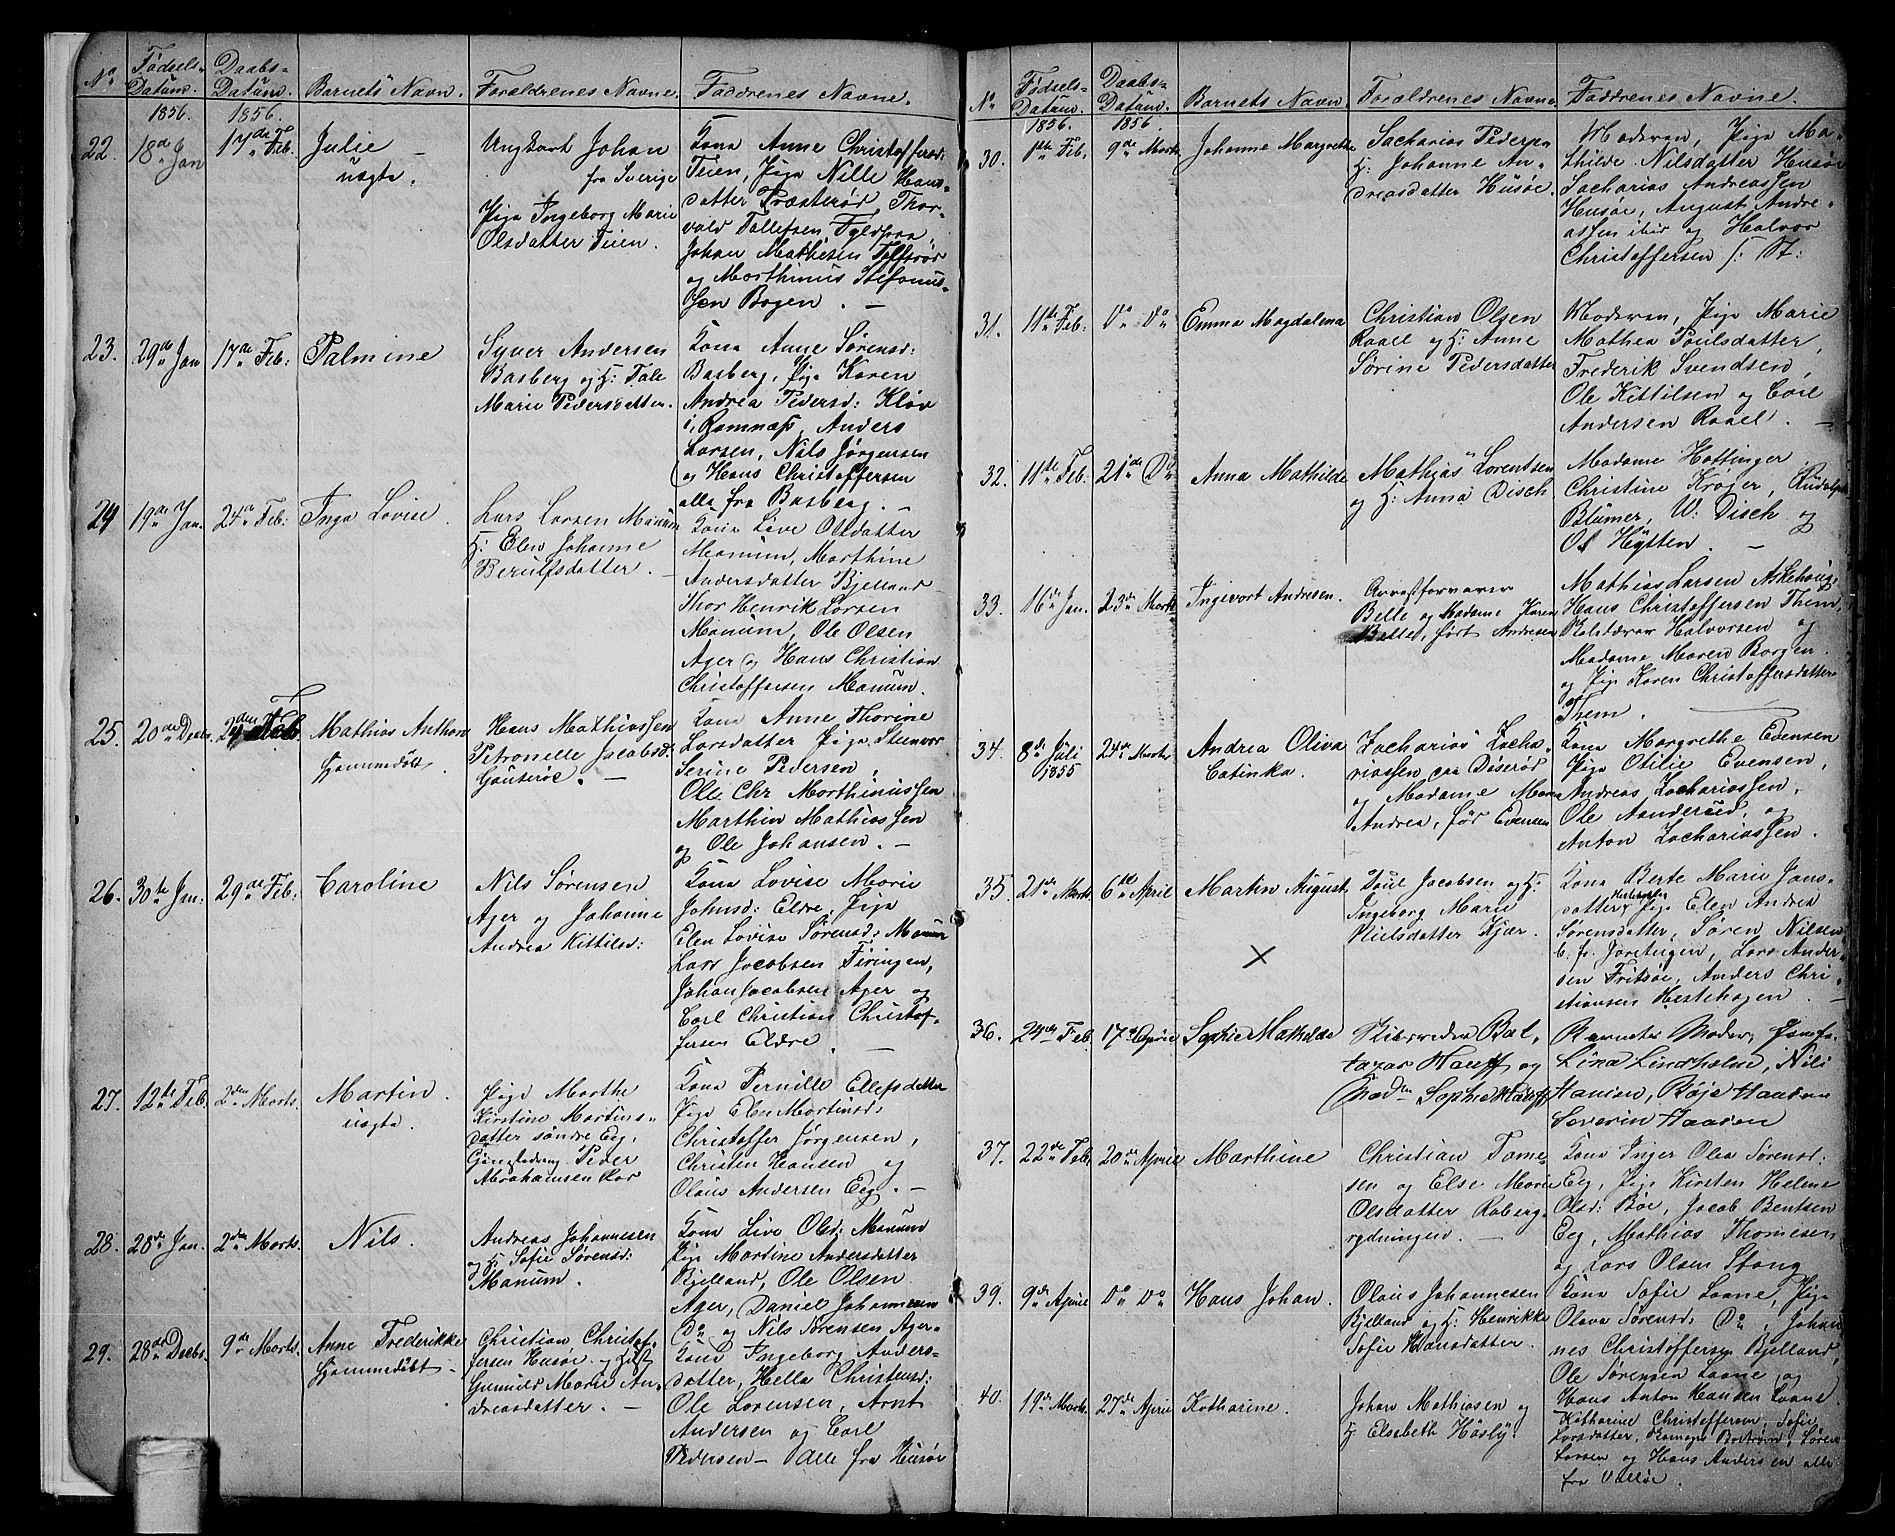 No Fødsels-Datum. Daabs-Datum. Barnets Navn. Forældrenes Navne. Faddrenes Navne.
1856. 1856.
22. 18de Jan 17de Feb. Julie
uægte.
Ungkarl Johan
fra Sverige
Pige Ingeborg Marie
Olsdatter Teien.
Kona Anne Christoffersd:
Teien, Pige Nille Hans-
datter Præsterød, Thor-
vald Tollefsen Fyldpaa
Johan Mathisen
og Morthinus Stefanus-
sen Bogen.
23. 29de Jan 17de Feb: Palmine
Syver Andersen
Basberg og H: Tale
Marie Pedersdatter.
Kona Anne Sørensd:
Basberg, Pige Karen
Andrea Pedersd: Kløv
i Ramnæs, Anders
Larsen, Nils Jørgensen
og Hans Christoffersen
alle fra Basberg.
24 19de Jan. 24de Feb: Inga Lovise.
Lars Larsen Manum
H: Elen Johanne
Berulfsdatter.
Kona Live Olsdatter
Manum, Marthine
Andersdatter Bjelland
Thor Henrik Larsen
Manum, Ole Olsen
Ager og Hans Christian
Christoffersen Manum.
25. 20de Decbr. 24den Feb. Mathias Anthon
Hjemmedöbt.
Hans Mathiassen
Petronelle Jacobsd.
Gouterøe.
Kona Anne Thorine
Larsdatter Pige
Serine Pedersen,
Ole Chr Morthinussen
Marthin Mathiassen
og Ole Johansen.
26. 30te Jan: 29de Feb: Caroline
Nils Sørensen
Ager og Johanne
Andrea Kittilsd:
Kona Lovise Marie
Johnsd: Eldre, Pige
Elen Lovise Sørensd: Manum
Lars Jacobsen Firingen,
Johan Jacobsen Ager og
Carl Christian Christof-
fersen Eldre.
27. 12te Feb. 2den Marts. Martin.
uægte.
Pige Marthe
Kirstine Martins-
datter søndre Eeg,
Peder
Abrahamsen
Kona Pernille Ellefsdatter
Pige Elen Martinsd:
Christoffer Jørgensen,
Christen Hansen og
Olaus Andersen Eeg.
28. 28de Jan. 2den Marts. Nils.
Andreas Johannesen
og H: Sofie Sørensd:
Manum.
Kona Live Olsd: Manum
Pige Martine Andersdatter
Bjelland, Ole Olsen
Ager, Daniel Johannesen
Do og Nils Sørensen Ager.
29. 28de Decbr. 9de Marts. Anne Frederikke
Hjemmedöbt
Christian Christof-
fersen Husøe og H:
Gunild Marie An-
dreasdatter.
Kona Ingeborg Anders-
datter, Hella Christensd:
Ole Lorensen, Arnt
Andersen og Carl
Pedersen - Alle fra Husøe
No Fødsels-Datum. Daabs-Datum. Barnets Navn. Forældrenes Navne Faddrenes Navne.
1856. 1856.
30. 1ste Feb. 9de Marts Johanne Margrethe
Sacharias Pedersen
H: Johanne An-
dreasdatter Husøe.
Moderen, Pige Ma-
thilde Nilsdatter Husøe
Zacharias Andreassen
Husøe, August Andre-
assen ibid og Halvor
Christoffersen
31. 11te Feb: Do Do Emma Magdalena
Christian Olsen
Raael og H: Anne
Sørine Pedersdatter
Moderen, Pige Marie
Mathea Poulsdatter,
Frederik Svendsen,
Ole Kittilsen og Carl
Andersen Raael.
32. 11te Feb: 21de Do Anna Mathilde
Mathias Lorentsen
og H: Anna Disch
Madame Hattinger
Christine Krøjer, Rudolph
Blümer, W. Disch og
O. Hytten.
33. 16de Jan. 23de Marts Ingevort Andresen.
Arrestforvarer
Belle og Madame Karen
Belle, født Andresen
Mathias Larsen Askehoug,
Hans Christoffersen Them,
Halvorsen og
Madame Maren Borgen.
og Pige Karen Christoffersdatter
Them.
34. 8de Juli 1855 24de Marts Andrea Oliva
Catinka.
Zacharias Zacha-
riassen paa Diserød
og Madame Maren
Andrea, fød Evensen
Kona Margrethe Evensen
Pige Otilie Evensen,
Andreas Zachariassen,
Ole Aanderud, og
Anton Zachariassen.
35. 21de Marts 6te April Martin August
X
Poul Jacobsen og H:
Ingeborg Marie
Nielsdatter Kjær.
Kona Berte Marie Jans-
datter, Pige Elen Andrea
Sørensdatter, Søren Nilsen
Jaretugen, Lars Ander-
sen Fritsøe, Anders Chri-
stiansen Hestehagen.
36. 24de Feb. 17de April Sophie Mathilde
Skibsreder Bal-
tazar Hauff og
Madm Sophie Hauff
Barnets Moder, Jomfru
Lina Lindholm, Nils
Hansen, Røje Haasen
Severin Haasen
37. 22de Feb. 20de April Marthine
Christian Tome-
sen og Else Marie
Olsdatter Roberg-
rydningen.
Kona Inger Olea Sørensd:
Eeg, Pige Kirsten Helene
Olsd: Bøe, Jacob Bentsen
Eeg, Mathias Thomesen
og Lars Olsen Stang
39. 9de April Do Do Hans Johan.
Olaus Johannesen
Bjelland og H: Henrikke
Sofie Hansdatter.
Kona Sofie Laane, Pige
Olava Sørensd: Do, Johan-
nes Christoffersen Bjelland,
Ole Sørensen Laane og
Hans Anton Hansen Laane.
40. 19de Marts. 27de April Katharine.
Johan Mathiasen og
H: Elsabeth Hasly.
Katharine Christoffersen, Sofie
Larsdatter, Søren
Larsen og Hans Andersen alle
fra Valløe.